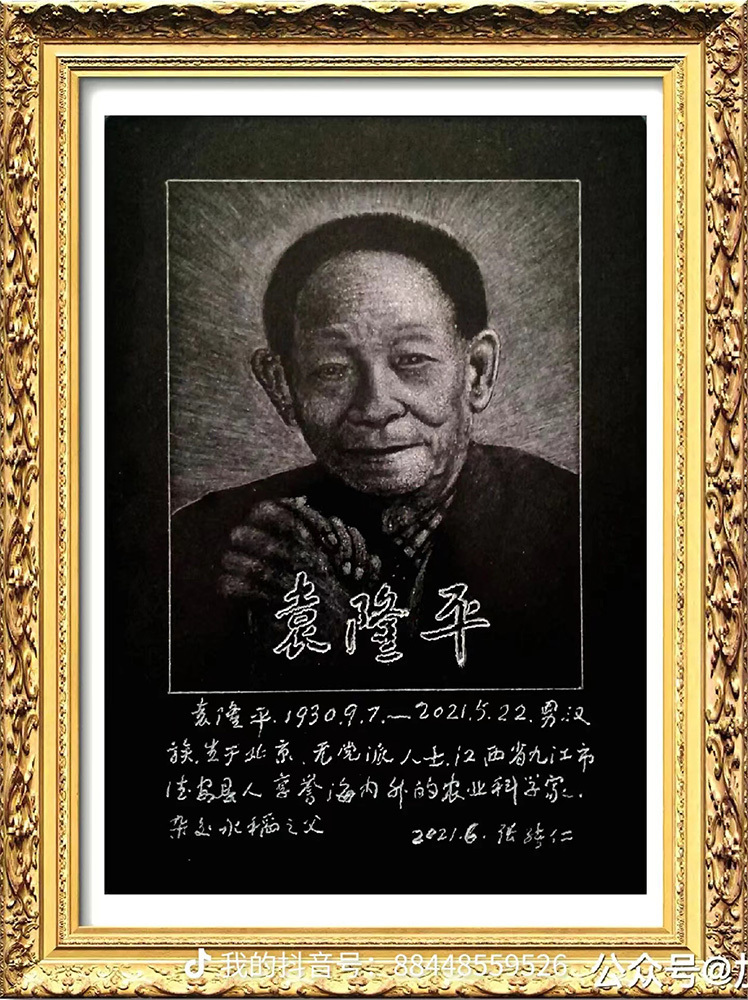 袁隆平
袁隆平.1930.9.7.—2021.5.22.男.汉
族.生于北京.无党派人士.江西省九江市
德安县人享誉海内外的农业科学家.
杂交水稻之父
2021.6.张
我的抖音号：88448559526
公众号@